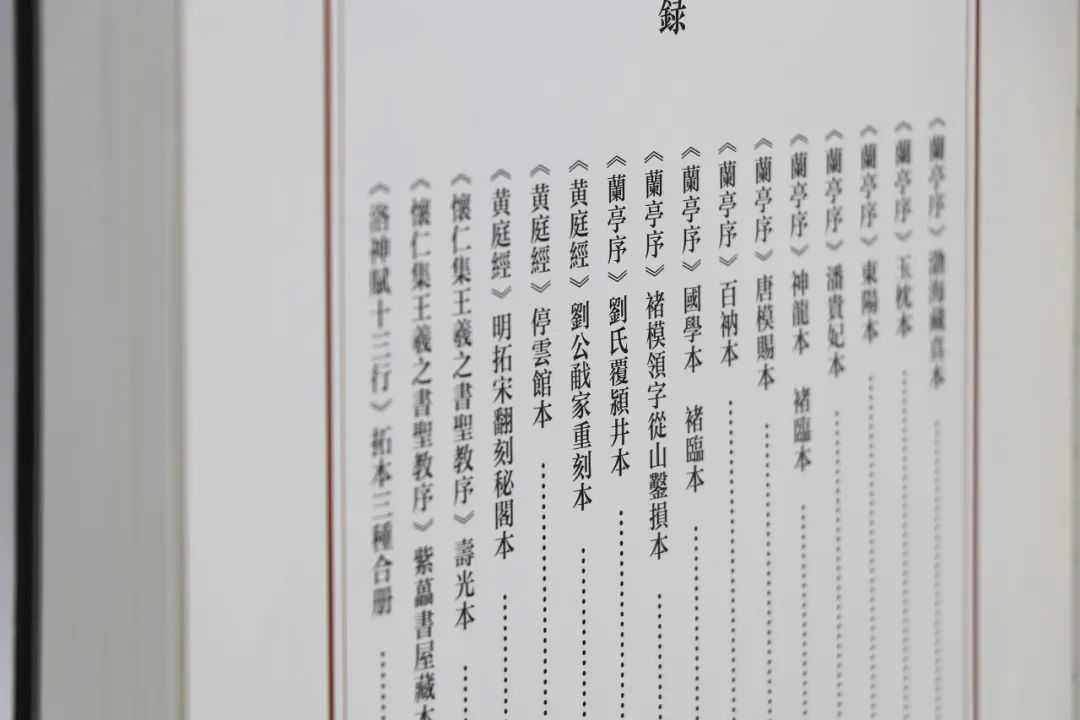 録
《蘭亭序》渤海藏真本
《蘭亭序》玉枕本
《蘭亭序》東陽本
《蘭亭序》潘貴妃本
《蘭亭序》神龍本 褚臨本
《蘭亭序》唐模賜本
《蘭亭序》百衲本
《蘭亭序》國學本 褚臨本
《蘭亭序》褚模領字從山鑿損本
《蘭亭序》劉氏覆潁井本
《黄庭經》劉公戢家重刻本
《黄庭經》停雲館本
《黄庭經》明拓宋翻刻秘閣本
《懷仁集王羲之書聖教序》壽光本
《懷仁集王羲之書聖教序》紫藟書屋藏本
《洛神賦十三行》拓本三種合册